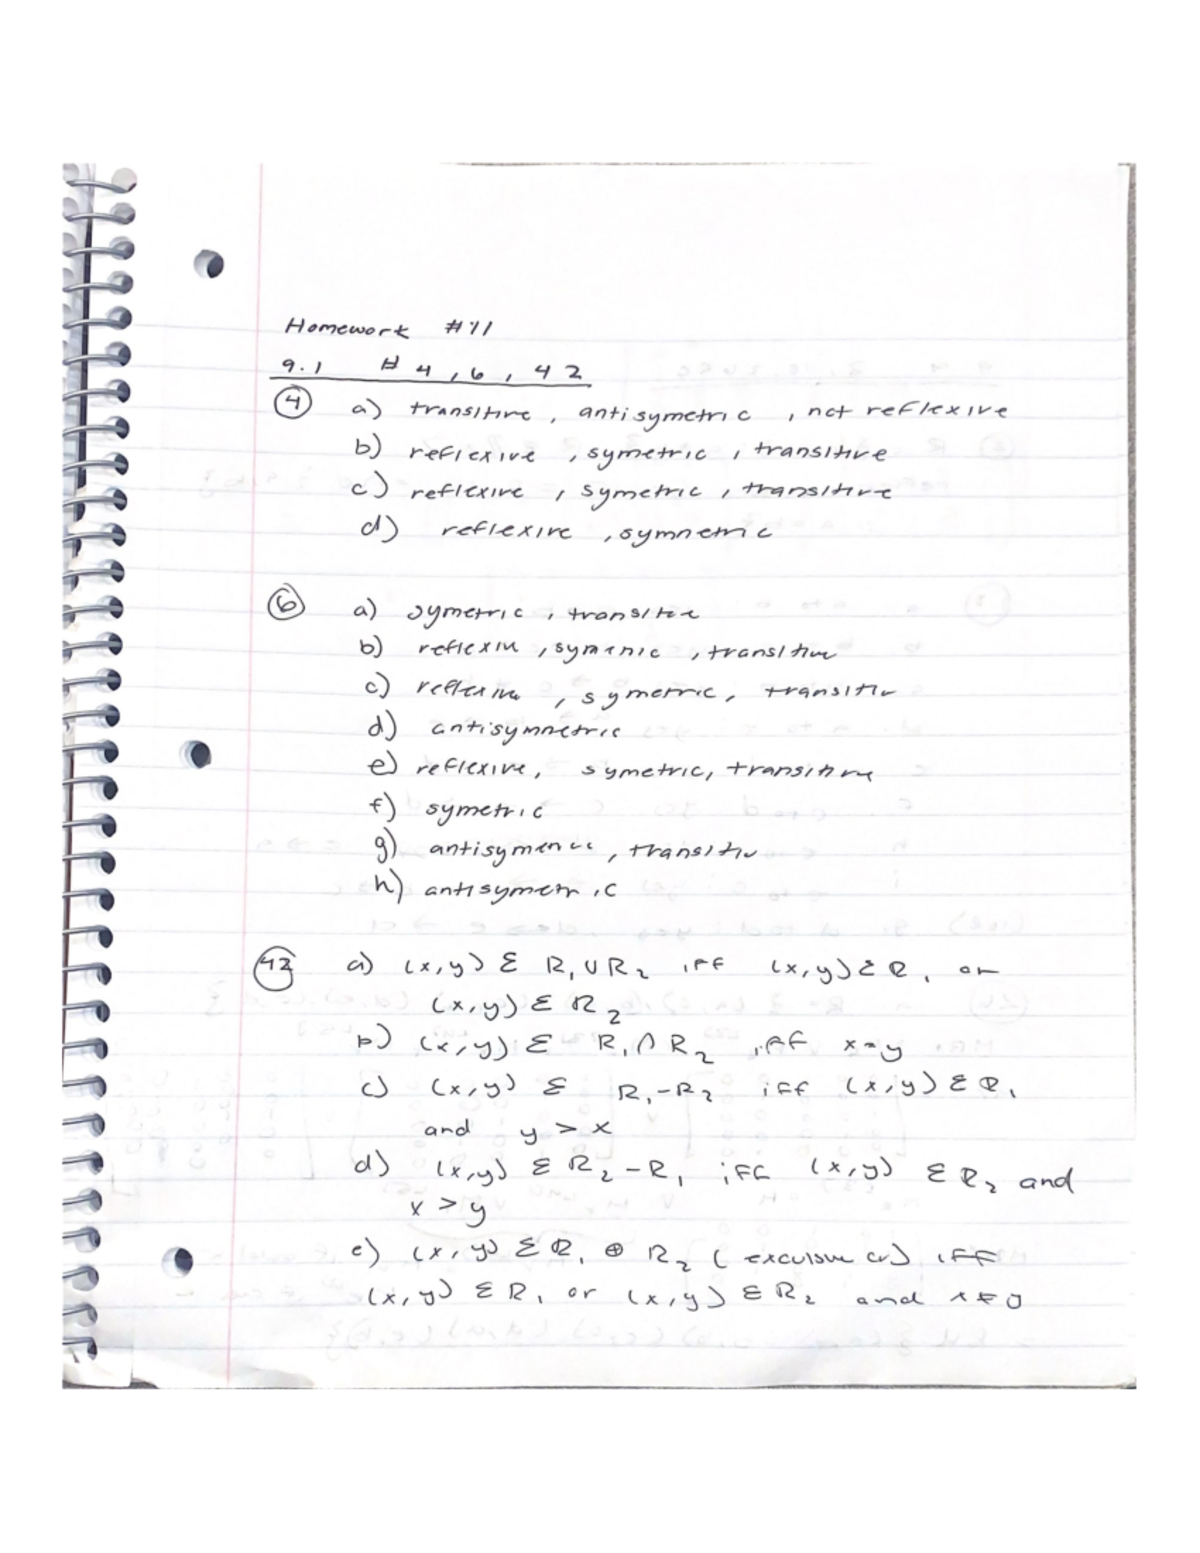 Homework #11
9.1 # 4, 6, 42
4 a) transitive, antisymetric, not reflexive
b) reflexive, symetric, transitive
c) reflexive, symetric, transitive
d) reflexive, symnetric
6 a) symetric, transitive
b) reflexive, symetric, transitive
c) reflexive, symetric, transitiv
d) antisymnetric
e) reflexive, symetric, transitive
f) symetric
g) antisymetric, transitiv
h) antisymetric
42 a) (x,y) Σ R₁ ∪ R₂ iff (x,y) Σ R₁ or
(x,y) Σ R₂
b) (x,y) Σ R₁ ∩ R₂ iff x=y
c) (x,y) Σ R₁-R₂ iff (x,y) Σ R₁
and y > x
d) (x,y) Σ R₂-R₁ iff (x,y) Σ R₂ and
x > y
e) (x,y) Σ R₁ ⊕ R₂ (exculsive or) iff
(x,y) Σ R₁ or (x,y) Σ R₂ and